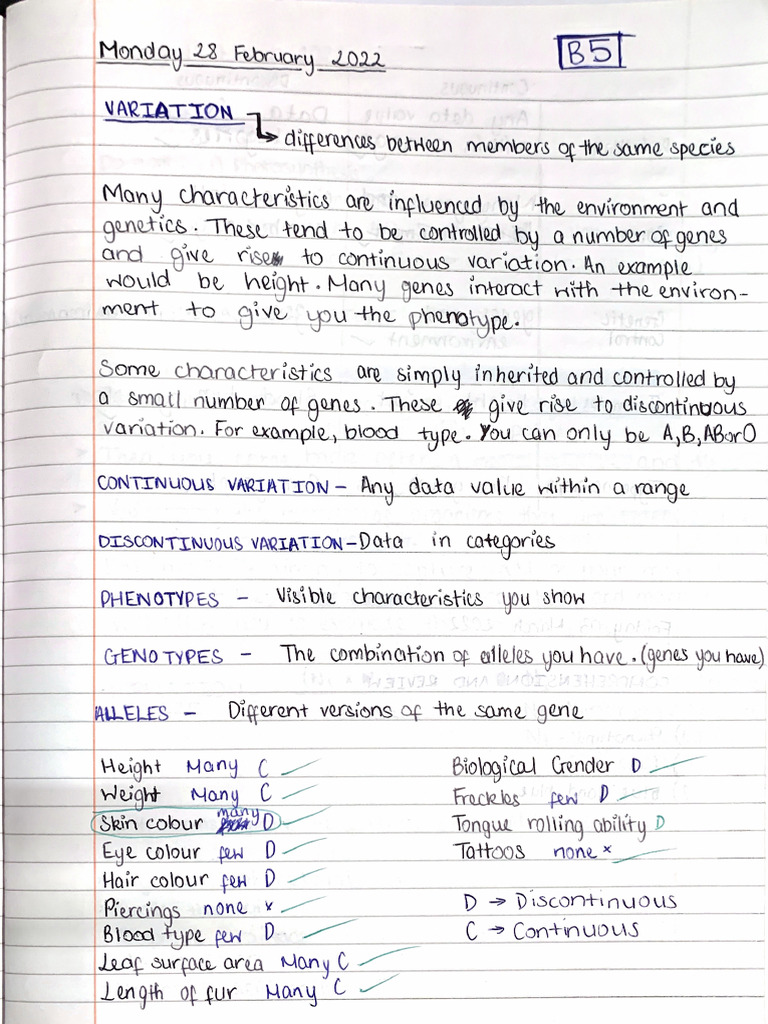 Monday 28 February 2022
B5
VARIATION
differences between members of the same species
Many characteristics are influenced by the environment and
genetics. These tend to be controlled by a number of genes
and give rise to continuous variation. An example
would be height. Many genes interact with the environ-
ment to give you the phenotype.
Some characteristics are simply inherited and controlled by
a small number of genes. These give rise to discontinuous
variation. For example, blood type. You can only be A, B, AB or O
CONTINUOUS VARIATION - Any data value within a range
DISCONTINUOUS VARIATION - Data in categories
PHENOTYPES - Visible characteristics you show
GENOTYPES - The combination of alleles you have. (genes you have)
ALLELES - Different versions of the same gene
Height Many C ✓
Weight Many C ✓
Skin colour many D ✓
Eye colour few D ✓
Hair colour few D ✓
Piercings none × ✓
Blood type few D ✓
Leaf surface area Many C ✓
Length of fur Many C ✓
Biological Gender D ✓
Freckles few D ✓
Tongue rolling ability D
Tattoos none × ✓
D → Discontinuous
C → Continuous